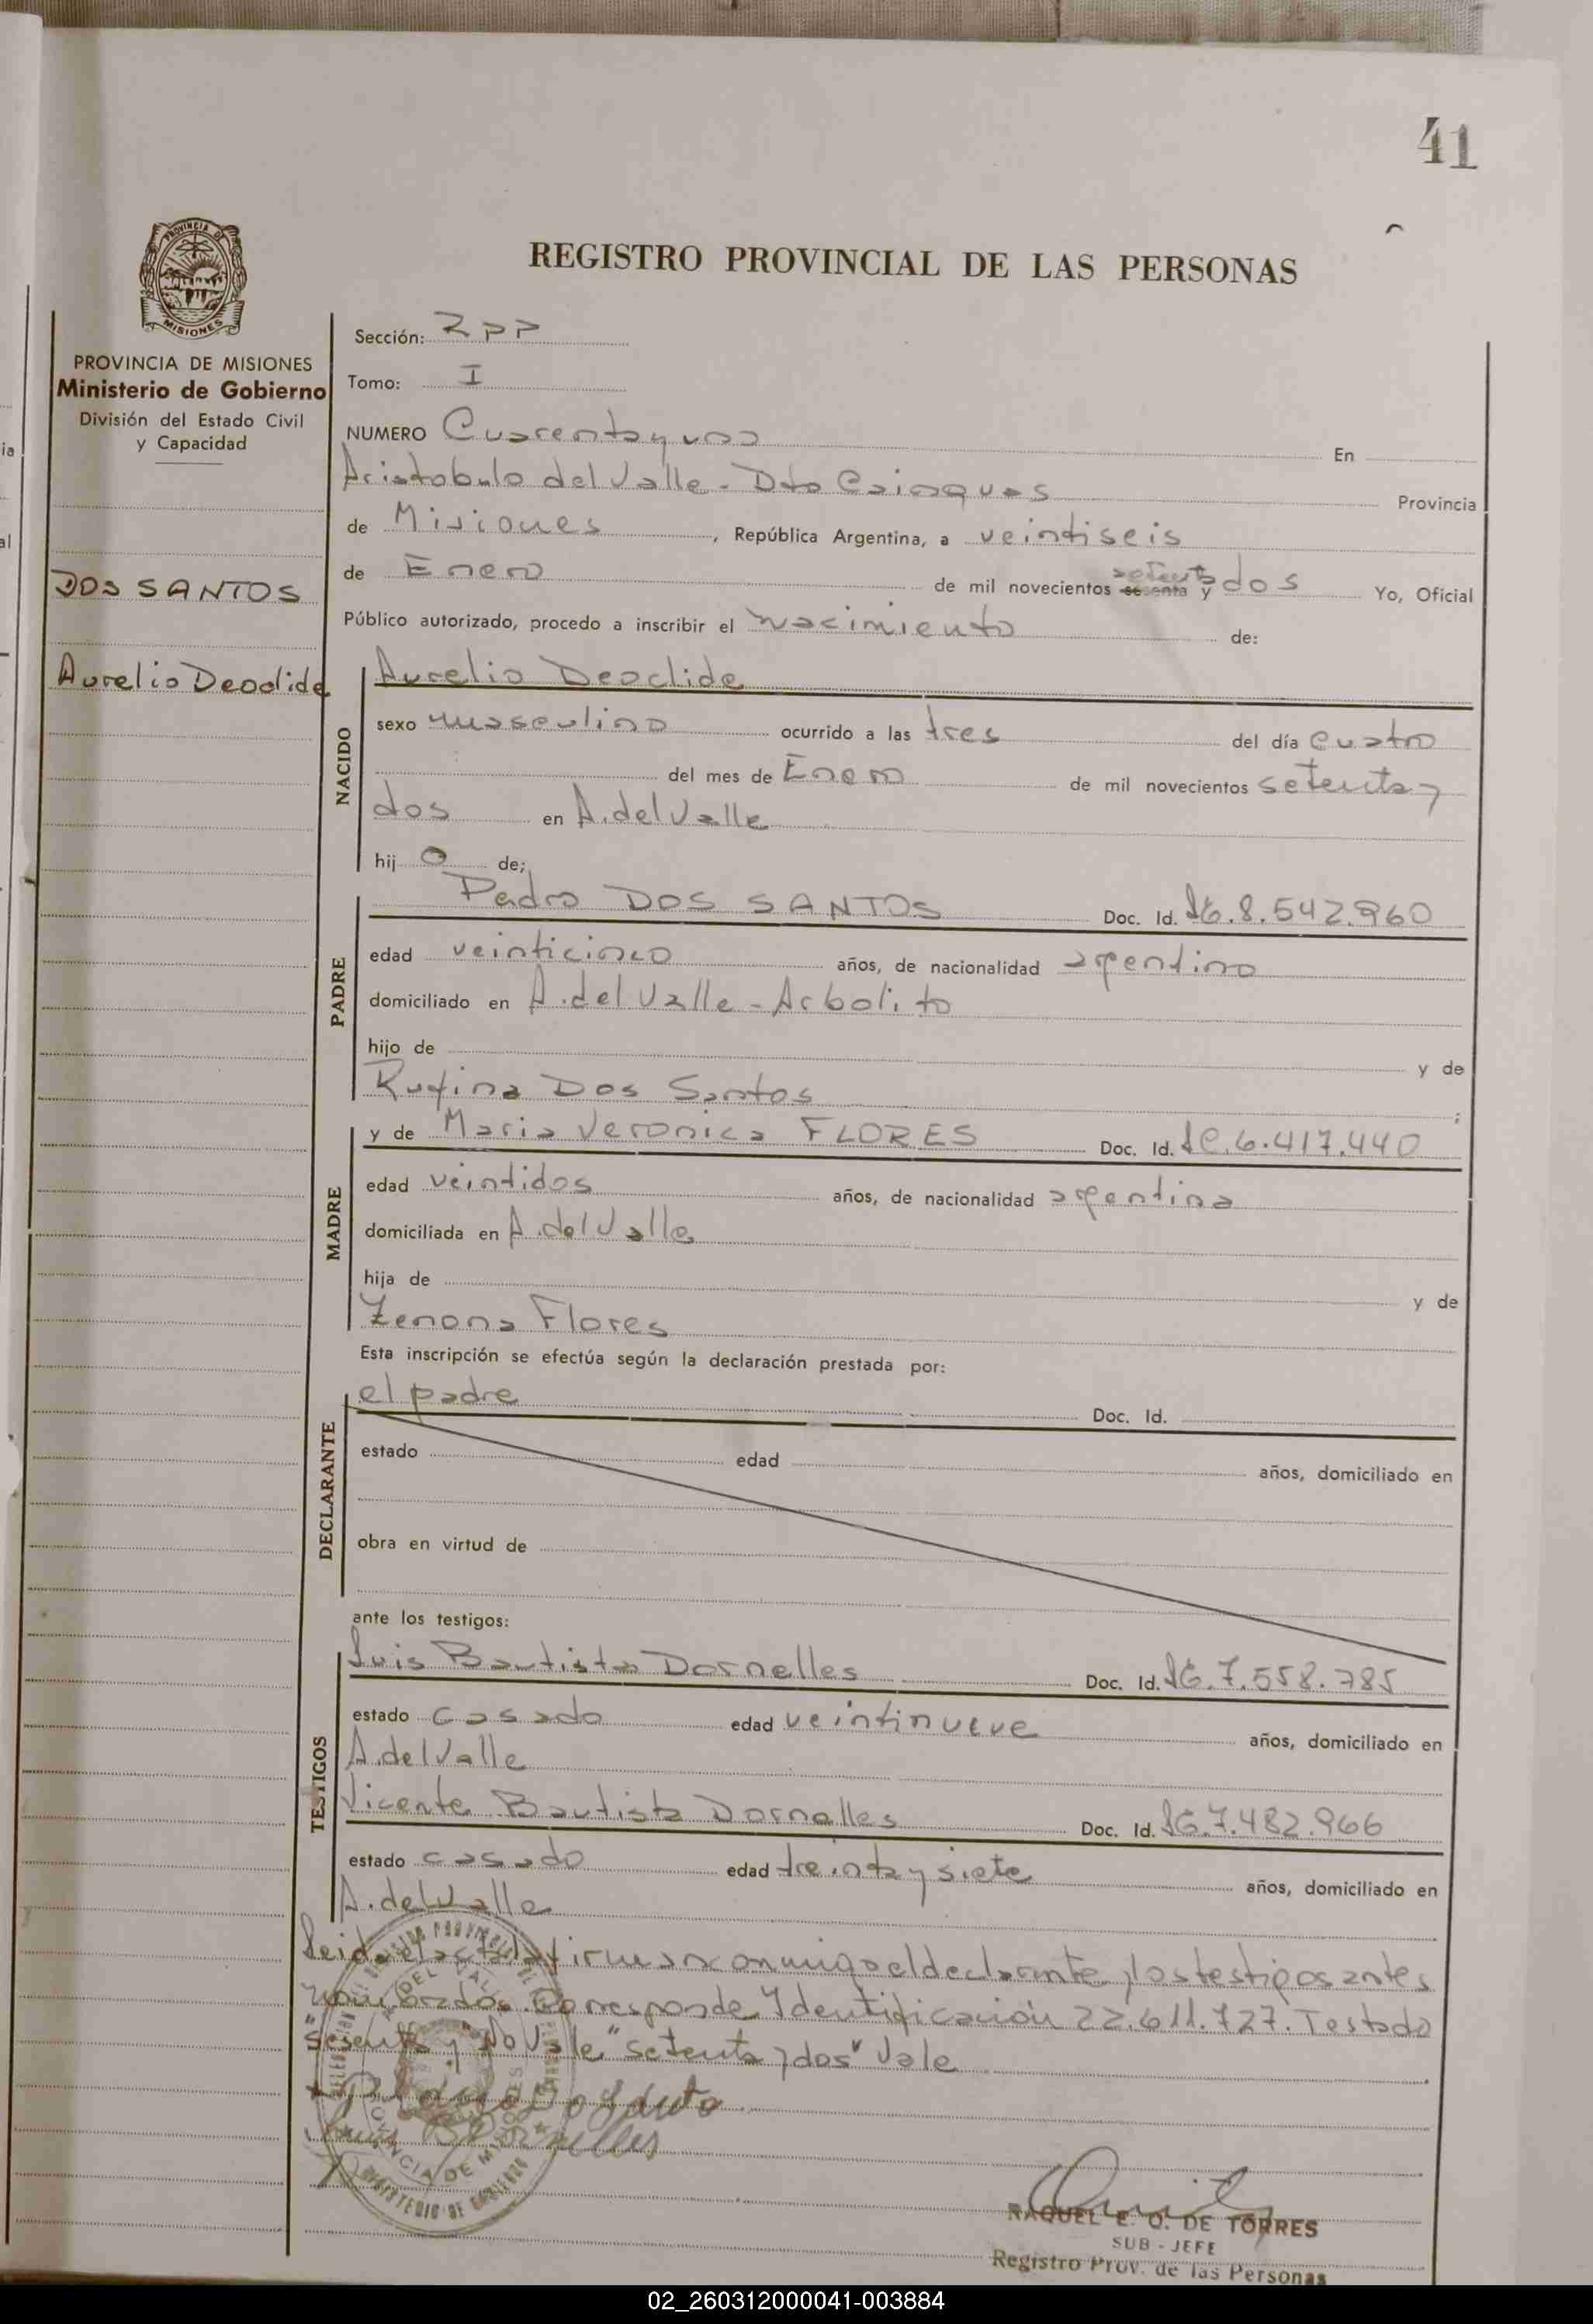 41
REGISTRO PROVINCIAL DE LAS PERSONAS
PROVINCIA DE MISIONES
Ministerio de Gobierno
División del Estado Civil
y Capacidad
DOS SANTOS
Aurelio Deoclide
Sección: RPP
Tomo: I
NUMERO Cuarenta y uno En
Aristobulo del Valle - Dto Cainguas Provincia
de Misiones, República Argentina, a veintiseis
de Enero de mil novecientos sesenta y setenta dos Yo, Oficial
Público autorizado, procedo a inscribir el nacimiento de:
NACIDO
Aurelio Deoclide
sexo masculino ocurrido a las tres del día cuatro
del mes de Enero de mil novecientos setenta y
dos en A. del Valle
hijo de;
PADRE
Pedro DOS SANTOS Doc. Id. 8.542.960
edad veinticinco años, de nacionalidad argentino
domiciliado en A. del Valle - Arbolito
hijo de y de
Rufina Dos Santos ;
MADRE
y de Maria Veronica FLORES Doc. Id. 6.417.440
edad veintidos años, de nacionalidad argentina
domiciliada en A. del Valle
hija de y de
Zenona Flores
Esta inscripción se efectúa según la declaración prestada por:
DECLARANTE
el padre Doc. Id.
estado edad años, domiciliado en
obra en virtud de
ante los testigos:
TESTIGOS
Luis Bautista Dornelles Doc. Id. 7.558.785
estado casado edad veintinueve años, domiciliado en
A. del Valle
Vicente Bautista Dornelles Doc. Id. 7.482.966
estado casado edad treinta y siete años, domiciliado en
A. del Valle
Leida el acta la firman conmigo el declarante y los testigos antes
nombrados. Corresponde Identificación 22.611.727. Testado
"sesenta y" No Vale "setenta y dos" Vale
RAQUEL E. O. DE TORRES
SUB - JEFE
Registro Prov. de las Personas
02_260312000041-003884